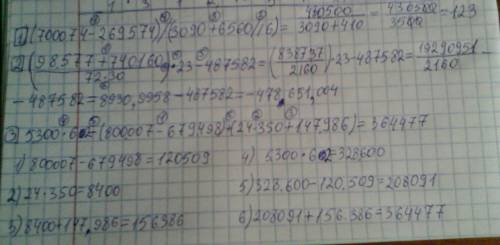 1) (700074-269574)/(3090+6560/16)= 430500/3090+410 = 430500/3500 =123
2) (98577+740160/72·30)·23-487582=(838737/2160)·23-487582= 19290951/2160 -
-487582=8930,9958-487582=-478,651,004
3) 5300·62-(800007-679498)+(24·350+147986)=364477
1) 800007-679498=120509 4) 5300·62=328600
2) 24·350=8400 5) 328.600-120.509=208091
3) 8400+147,986=156386 6) 208091+156.386=364477